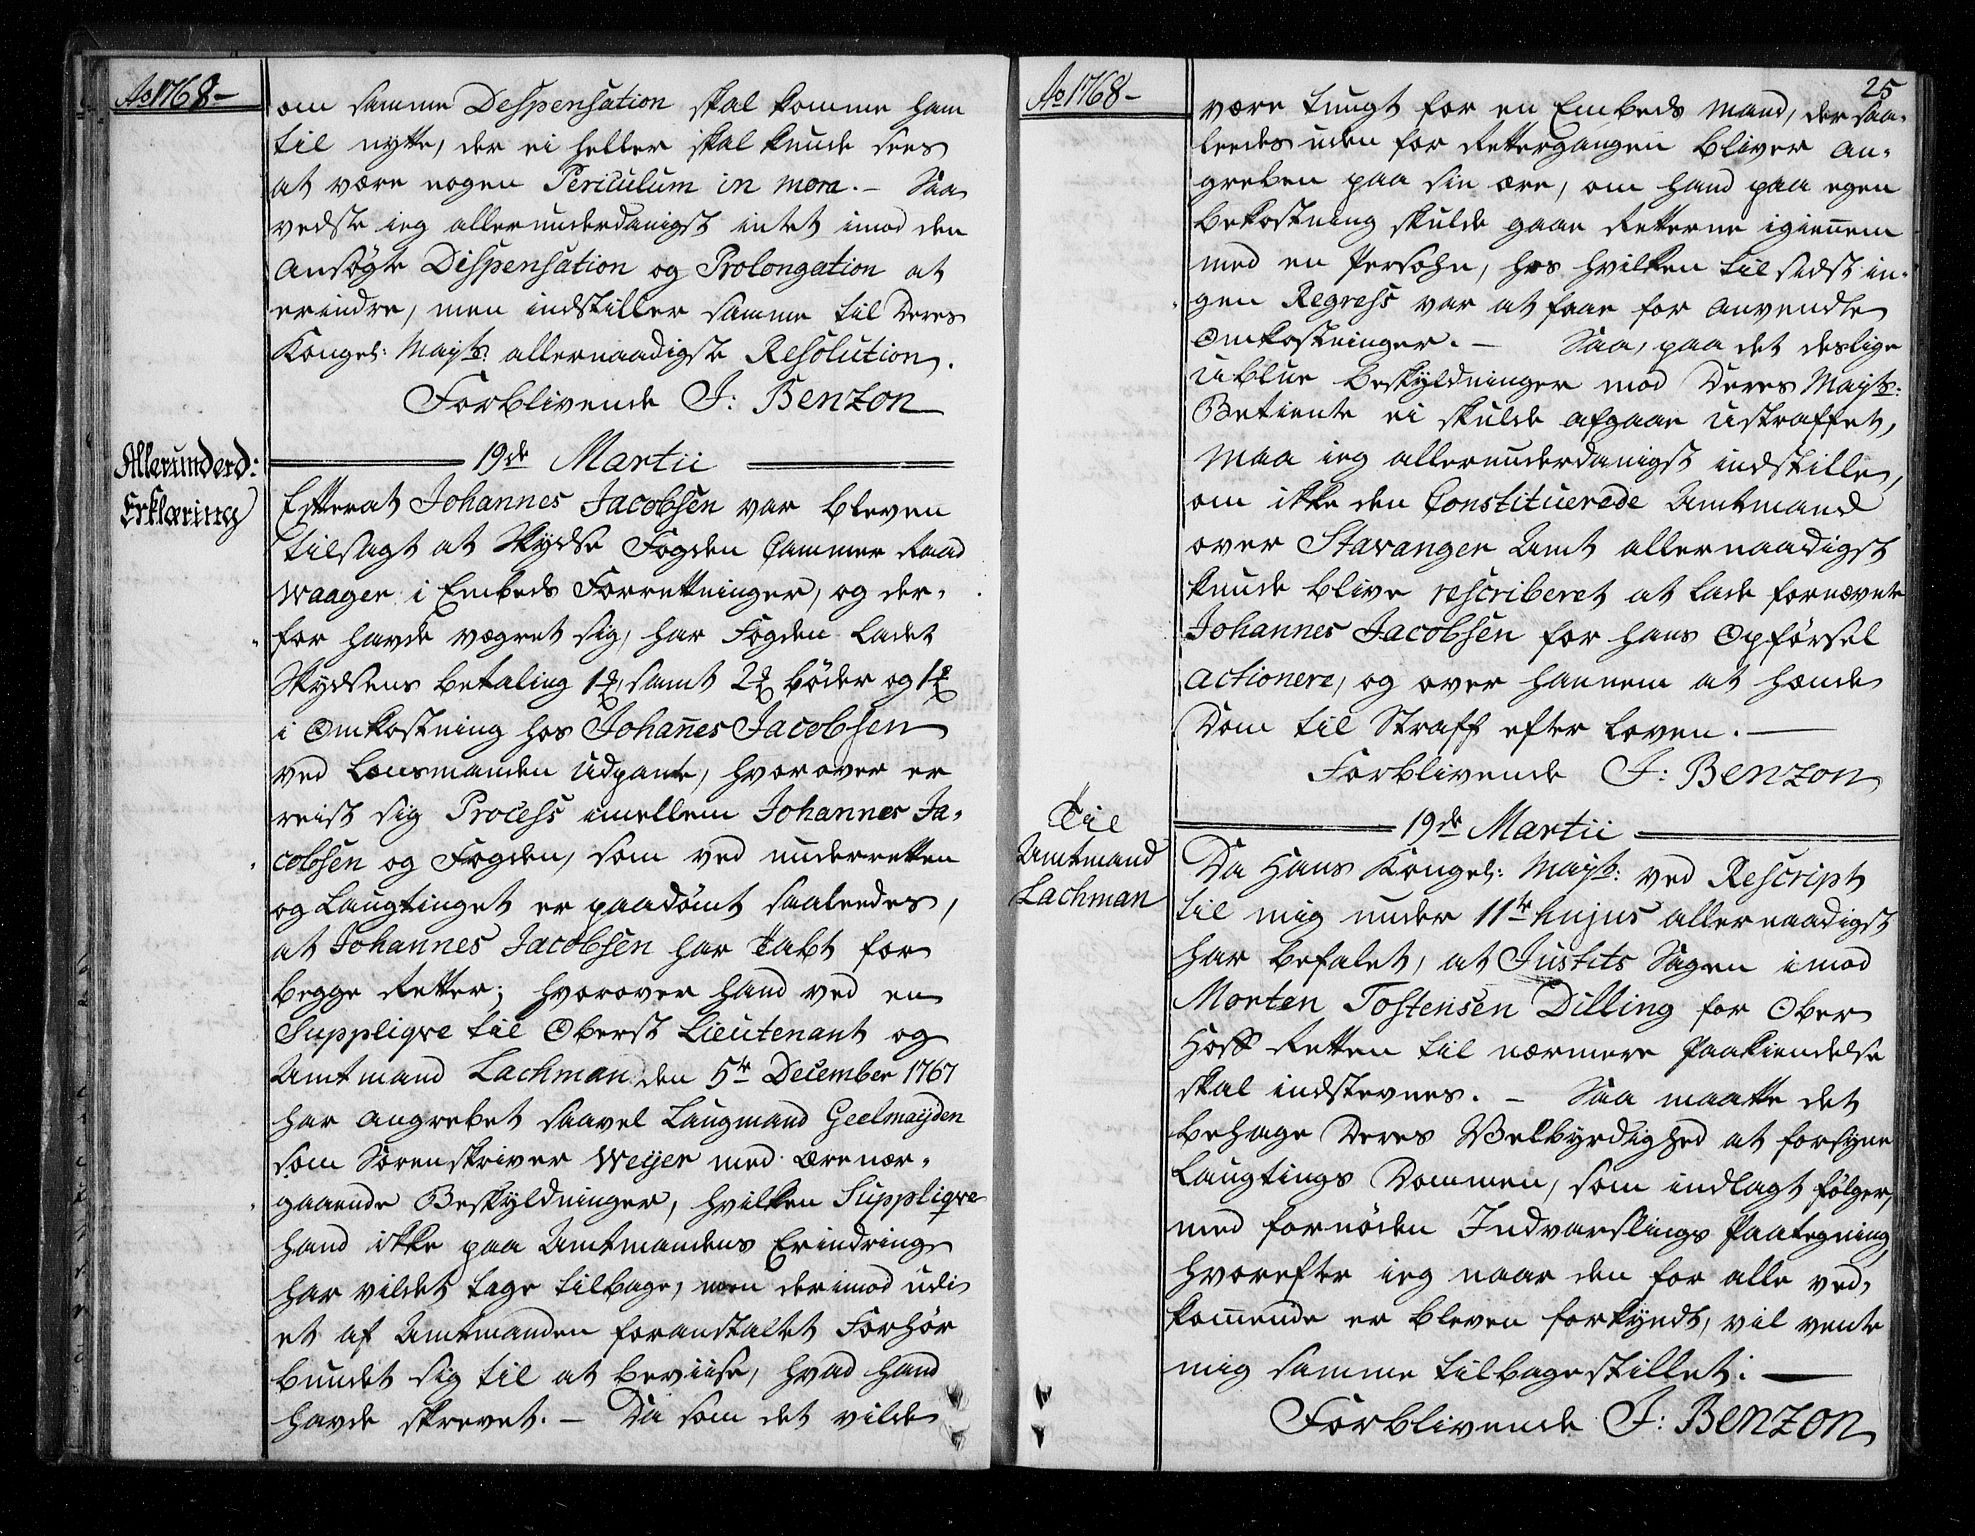 Ao 1768-
om samme Despensation skal komme ham
til nytte, der ei heller skal kunde sees
at være nogen Periculum in mora. – Saa
vedste ieg allerunderdanigst intet imod den
ansøgte Dispensation og Prolongation at
erindre, men indstiller samme til Deres
Kongel: Mayts: allernaadigste Resolution.
Forblivende J: Benzon
19de Martii
Allerunderd:
Erklæring
Efterat Johannes Jacobsen var bleven
tilsagt at Skydse Fogden Cammer Raad
Waager i Embeds Forretninger, og der-
for havde vægret sig, har Fogden ladet
Skydsens betaling 1 rd, samt 2 rd bøder og 1 rd
i Omkostning hos Johannes Jacobsen
ved Lænsmanden udpante, hvorover er
reist sig Process imellem Johannes Ja-
cobsen og Fogden, som ved underretten
og Laugtinget er paadømt saaleedes,
at Johannes Jacobsen har tabt for
begge Retter; hvorover hand ved en
Suppliqve til Oberst Lieutenant og
Amtmand Lachman den 5te December 1767
har angrebet saavel Laugmand Geelmuyden
som Sorenskriver Weyer med ærenær-
gaaende Beskyldninger, hvilken Suppliqve
hand ikke paa Amtmandens Erindring
har vildet tage tilbage, men derimod udi
et af Amtmanden foranstaltet Forhør
bundet sig til at beviise, hvad hand
havde skrevet. – Da som det vilde
Ao 1768-
25
være tungt for en Embeds Mand, der saa-
leedes uden for Rettergangen bliver an-
greben paa sin ære, om hand paa egen
bekostning skulde gaae Retterne igiennem
med en Persohn, hos hvilken til sidst in-
gen Regress var at faae for anvendte
Omkostninger. – Saa, paa det deslige
ublue beskyldninger mod Deres Mayts:
Betiente ei skulde afgaae ustraffet,
maa ieg allerunderdanigst indstille,
om ikke den Constituerede Amtmand
over Stavanger Amt allernaadigst
kunde blive rescriberet at lade fornævnte
Johannes Jacobsen for hans Opførsel
actionere, og over hannem at hænde
Dom til Straff efter Loven. –
Forblivende J: Benzon
19de Martii
Til
Amtmand
Lachman
Da Hans Kongel: Mayts: ved Rescript
til mig under 11te hujus allernaadigst
har befalet, at Justits Sagen imod
Morten Tostensen Dilling for Ober
Hoff Retten til nærmere Paakiendelse
skal indstevnes. – Saa maatte det
behage Deres Velbyrdighed at forsyne
Laugtings Dommen, som indlagt følger,
med fornøden Indvarslings Paategning,
hvorefter ieg naar den for alle ved-
kom̄ende er bleven forkyndt, vil vente
mig samme tilbagestillet. –
Forblivende J: Benzon